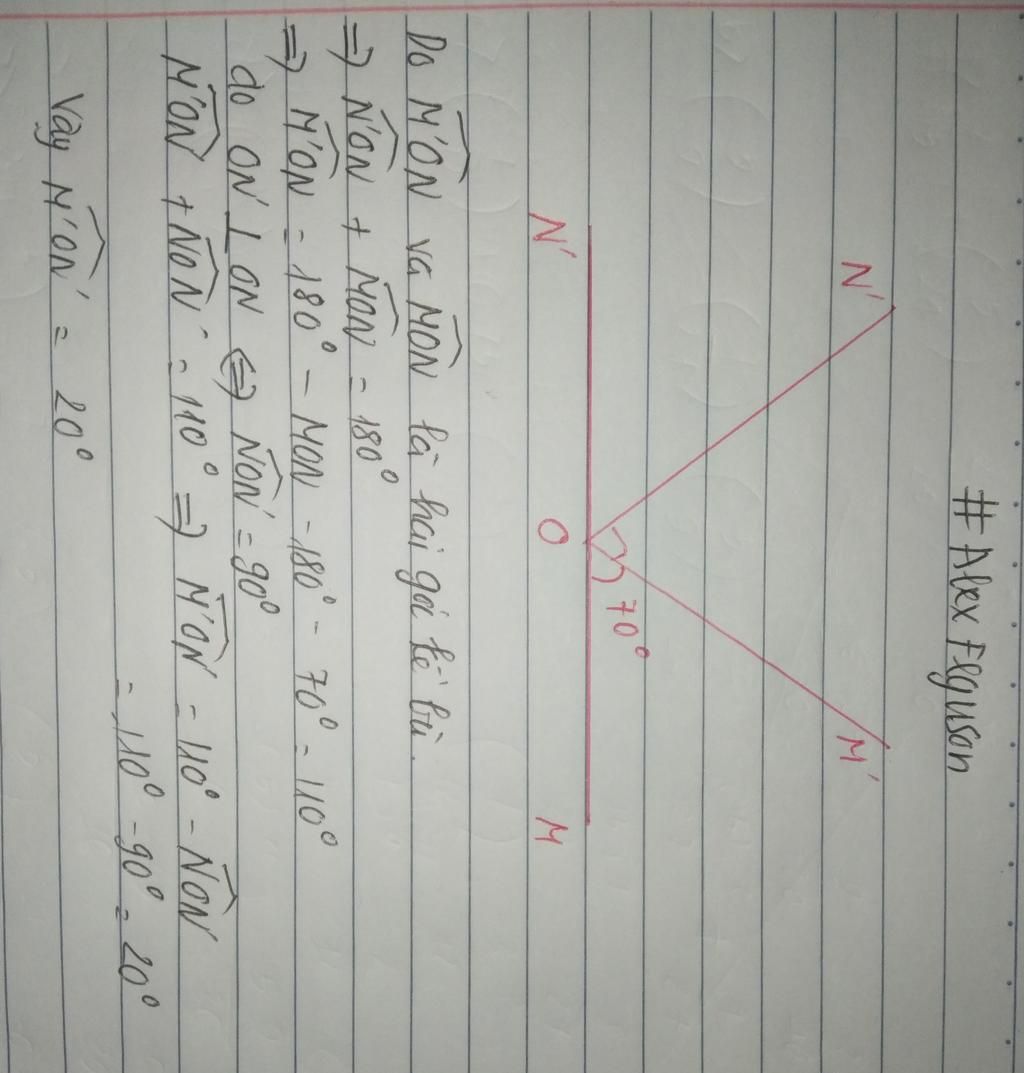 # Alex Feguson
N'
M'
70°
N'
O
M
Do M'ON và MON là hai gói kề bù.
⇒ N'ON + MON = 180°
⇒ M'ON = 180° - MON - 180° - 70° = 110°
do ON' ⊥ ON ⇔ NON' = 90°
M'ON' + NON' = 110° ⇒ M'ON' = 110° - NON'
= 110° - 90° = 20°
Vậy M'ON' = 20°